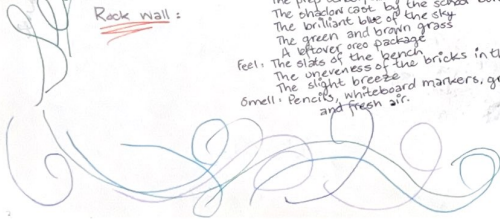 Rock Wall:
The shadow cast by the school
The brilliant blue of the sky
The green and brown grass
A leftover oreo package
Feel: The slats of the bench
The uneveness of the bricks in th
The slight breeze
Smell: Pencils, whiteboard markers, gr
and fresh air.